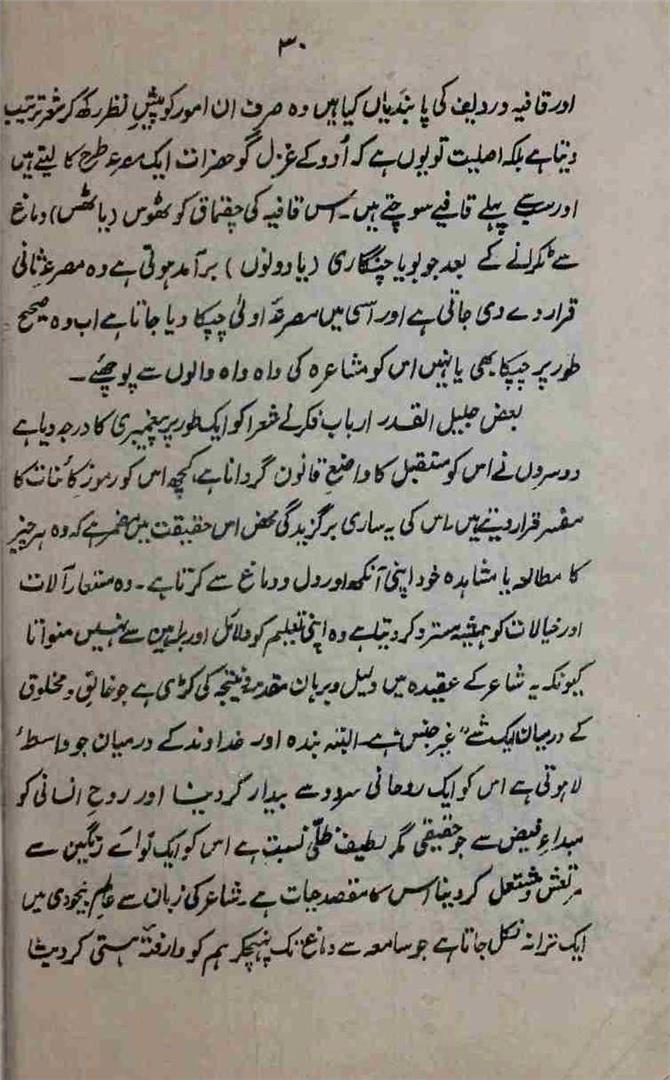 ۳۰
اور قافیہ و ردیف کی پابندیاں کیا ہیں وہ صرف ان امور کو پیشِ نظر رکھ کر شعر ترتیب
دیتا ہے بلکہ اصلیت تو یوں ہے کہ اُردو کے غزل گو حضرات ایک مصرعہ طرح کا لیتے ہیں
اور سب سے پہلے قافیے سوچتے ہیں۔ اس قافیہ کی چقماق کو ٹھوس (یا ٹھس) دماغ
سے ٹکرانے کے بعد جو بو یا چنگاری (یا دونوں) برآمد ہوتی ہے وہ مصرعۂ ثانی
قرار دے دی جاتی ہے اور اسی میں مصرعۂ اولیٰ چپکا دیا جاتا ہے اب وہ صحیح
طور پر چپکا بھی یا نہیں اس کو مشاعرہ کی واہ واہ والوں سے پوچھئے۔
بعض جلیل القدر ارباب فکر نے شعرا کو ایک طور پر پیغمبری کا درجہ دیا ہے
دوسروں نے اس کو مستقبل کا واضعِ قانون گردانا ہے، کچھ اس کو رموز کائنات کا
مفسر قرار دیتے ہیں اس کی یہ ساری برگزیدگی محض اس حقیقت میں مضمر ہے کہ وہ ہر چیز
کا مطالعہ یا مشاہدہ خود اپنی آنکھ اور دل و دماغ سے کرتا ہے۔ وہ مستعار آلات
اور خیالات کو ہمیشہ مسترد کر دیتا ہے وہ اپنی تعلیم کو دلائل اور براہین سے نہیں منواتا
کیونکہ یہ شاعر کے عقیدہ میں دلیل و برہان مقدمہ و نتیجہ کی کڑی ہے جو خالق و مخلوق
کے درمیان ایک شے "غیر جنس" ہے۔ البتہ بندہ اور خداوند کے درمیان جو واسطۂ
لاہوتی ہے اس کو ایک روحانی سرود سے بیدار کر دینا اور روحِ انسانی کو
مبداءِ فیض سے جو حقیقی مگر لطیف ظلّی نسبت ہے اس کو ایک نوائے رنگین سے
مرتعش و مشتعل کر دینا اس کا مقصدِ حیات ہے۔ شاعر کی زبان سے عالمِ بیخودی میں
ایک ترانہ نکل جاتا ہے جو سامعہ سے دماغ تک پہنچکر ہم کو وارفتۂ ہستی کر دیتا